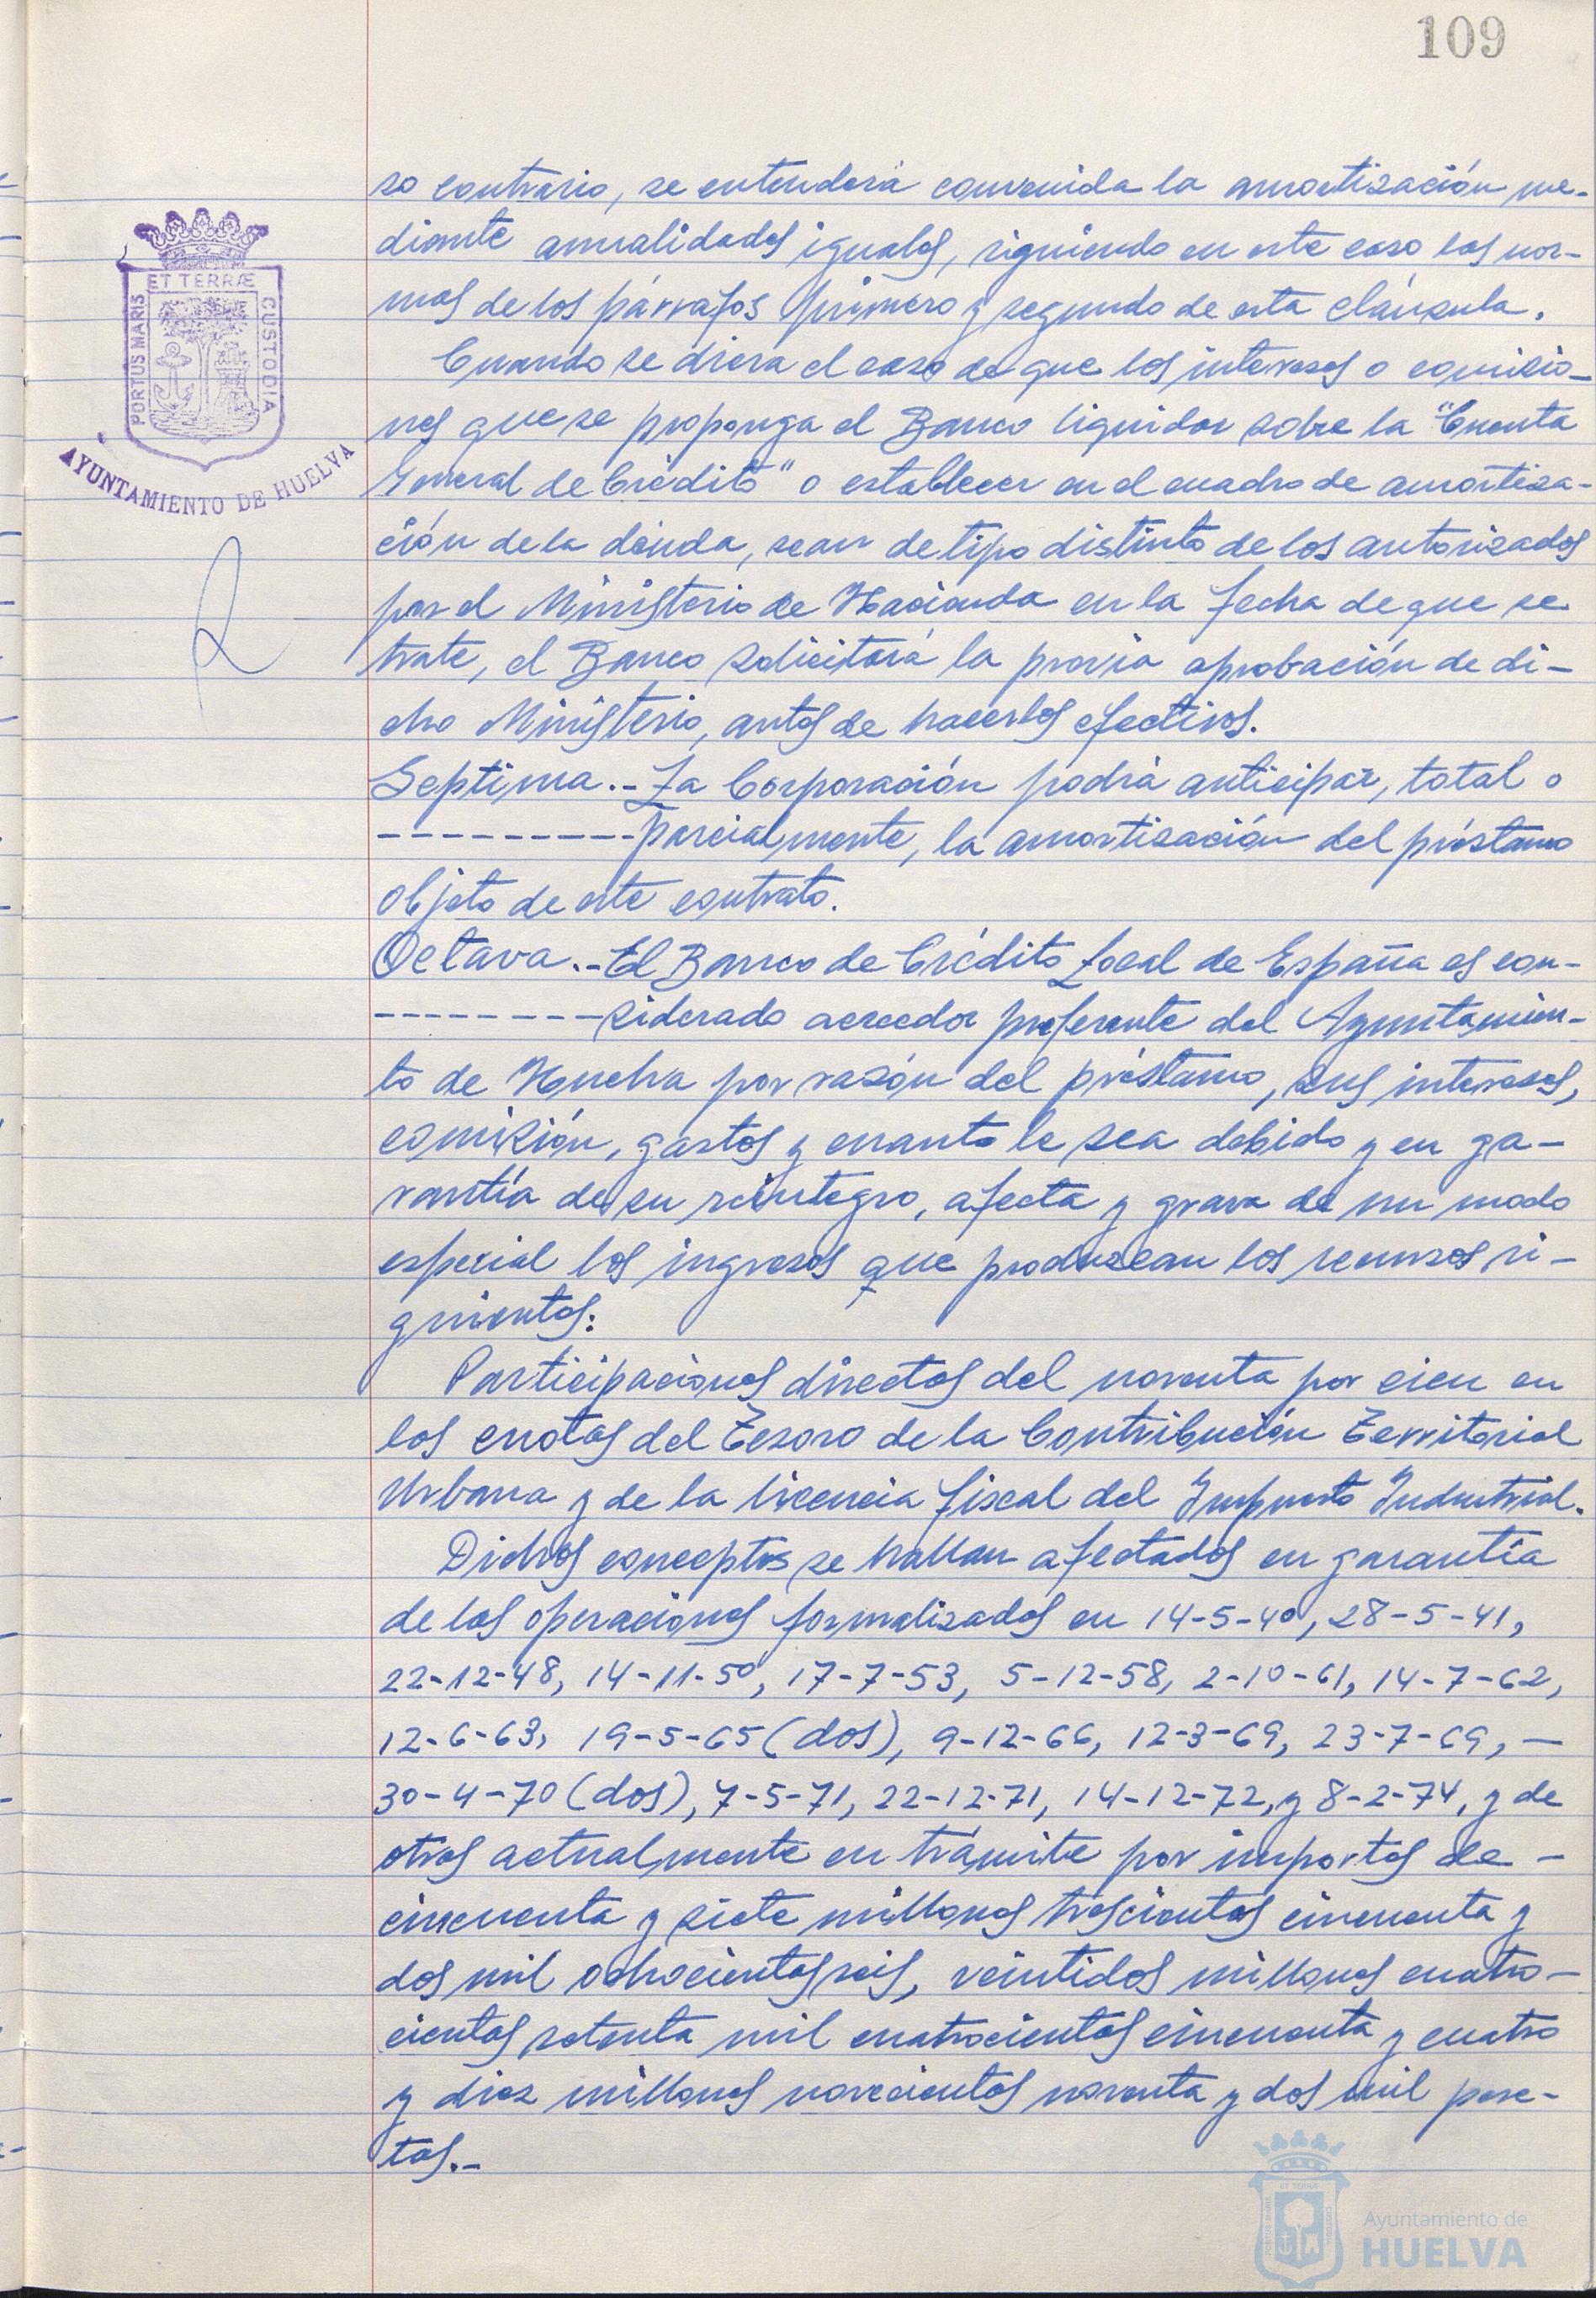 109
ET TERRÆ
PORTUS MARIS
CUSTODIA
AYUNTAMIENTO DE HUELVA
so contrario, se entenderá convenida la amortización me-
diante anualidades iguales, siguiendo en este caso las nor-
mas de los párrafos primero y segundo de esta cláusula.
Cuando se diera el caso de que los intereses o comisio-
nes que se proponga el Banco liquidar sobre la "Cuenta
General de Crédito" o establecer en el cuadro de amortiza-
ción de la deuda, sean de tipo distinto de los autorizados
por el Ministerio de Hacienda en la fecha de que se
trate, el Banco solicitará la previa aprobación de di-
cho Ministerio, antes de hacerlos efectivos.
Septima.- La Corporación podrá anticipar, total o
---------parcialmente, la amortización del préstamo
objeto de este contrato.
Octava.- El Banco de Crédito Local de España es con-
--------siderado acreedor preferente del Ayuntamien-
to de Huelva por razón del préstamo, sus intereses,
comisión, gastos y cuanto le sea debido y en ga-
rantía de su reintegro, afecta y grava de un modo
especial los ingresos que produzcan los recursos si-
guientes:
Participaciones directas del noventa por cien en
las cuotas del Tesoro de la Contribución Territorial
Urbana y de la licencia fiscal del Impuesto Industrial.
Dichos conceptos se hallan afectados en garantía
de las operaciones formalizadas en 14-5-40, 28-5-41,
22-12-48, 14-11-50, 17-7-53, 5-12-58, 2-10-61, 14-7-62,
12-6-63, 19-5-65 (dos), 9-12-66, 12-3-69, 23-7-69, -
30-4-70 (dos), 7-5-71, 22-12-71, 14-12-72, y 8-2-74, y de
otras actualmente en trámite por importes de -
cincuenta y siete millones trescientas cincuenta y
dos mil ochocientas seis, veintidos millones cuatro-
cientas setenta mil cuatrocientas cincuenta y cuatro
y diez millones novecientas noventa y dos mil pese-
tas.-
Ayuntamiento de
HUELVA